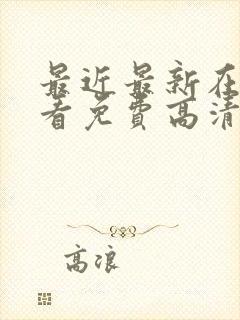 最近最新在
看免费高清
高浪